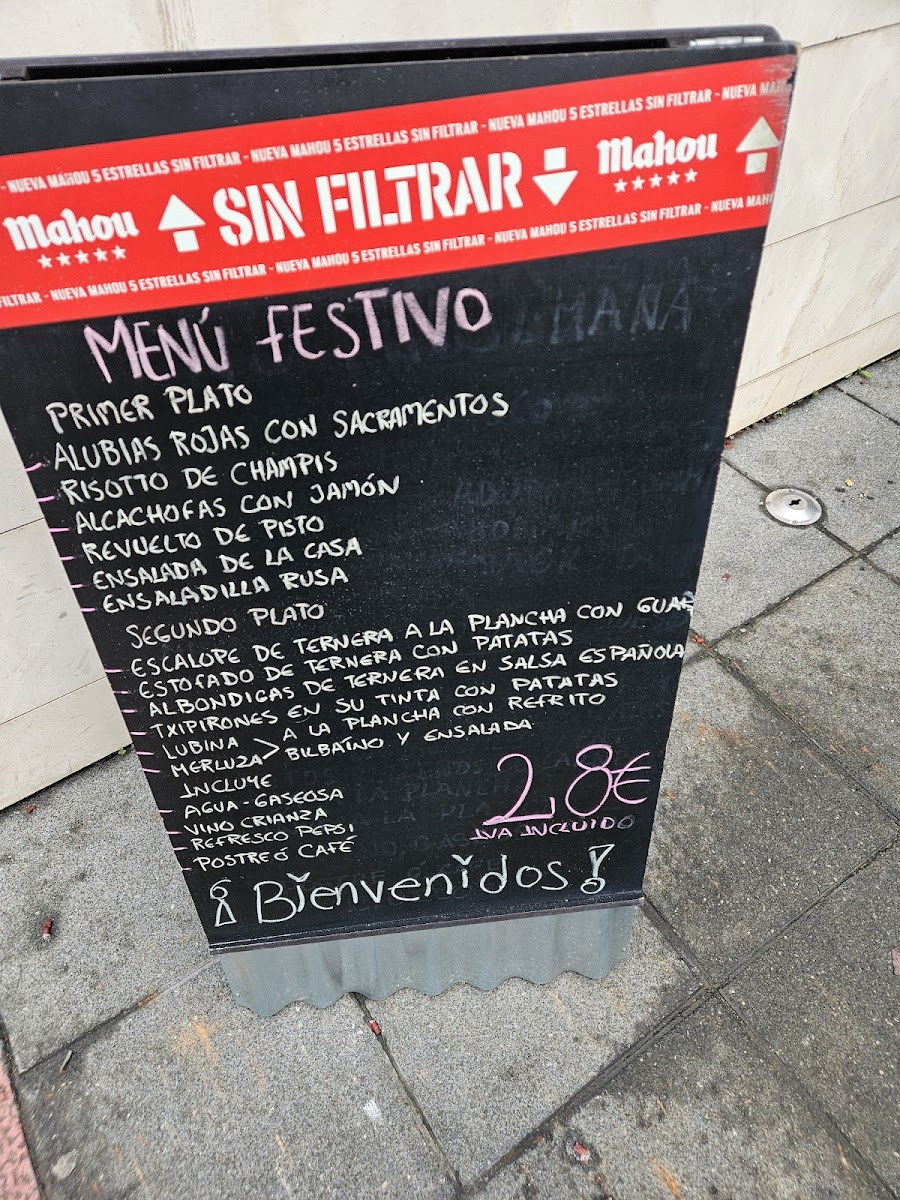 - NUEVA MAHOU 5 ESTRELLAS SIN FILTRAR - NUEVA MAHOU 5 ESTRELLAS SIN FILTRAR - NUEVA MAHOU 5 ESTRELLAS SIN FILTRAR - NUEVA
Mahou SIN FILTRAR Mahou
FILTRAR - NUEVA MAHOU 5 ESTRELLAS SIN FILTRAR - NUEVA MAHOU 5 ESTRELLAS SIN FILTRAR - NUEVA MAHOU 5 ESTRELLAS SIN FILTRAR - NUEVA MAH
MENÚ FESTIVO
PRIMER PLATO
- ALUBIAS ROJAS CON SACRAMENTOS
- RISOTTO DE CHAMPIS
- ALCACHOFAS CON JAMÓN
- REVUELTO DE PISTO
- ENSALADA DE LA CASA
- ENSALADILLA RUSA
SEGUNDO PLATO
- ESCALOPE DE TERNERA A LA PLANCHA CON
- ESTOFADO DE TERNERA CON PATATAS
- ALBONDIGAS DE TERNERA EN SALSA ESPAÑOLA
- TXIPIRONES EN SU TINTA CON PATATAS
- LUBINA > A LA PLANCHA CON REFRITO
- MERLUZA > BILBAÍNO Y ENSALADA
INCLUYE
- AGUA-GASEOSA
- VINO CRIANZA
- REFRESCO PEPSI
- POSTRE Ó CAFÉ
28€
IVA INCLUIDO
¡Bienvenidos!